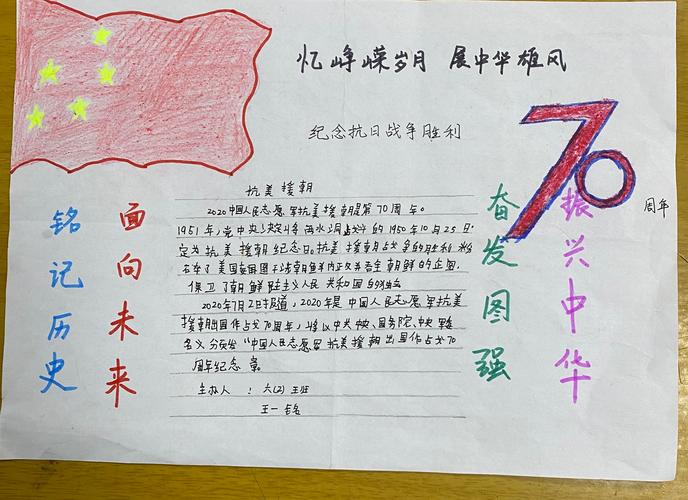 忆峥嵘岁月 展中华雄风
纪念抗日战争胜利
70周年
铭记历史
面向未来
抗美援朝
2020中国人民志愿军抗美援朝是第70周年。
1951年,党中央决定将 的1950年10月25日
定为抗美援朝纪念日。抗美援朝战争的胜利 粉
碎了美国 集团干涉朝鲜内政 吞全朝鲜的企图,
保卫了朝鲜 主义人民共和国的独立
2020年7月2日报道,2020年是中国人民志愿军抗美
援朝出国作战70周年,将以中共中央、国务院、中央军委
名义 发"中国人民志愿军抗美援朝出国作战70
周年纪念章。
主办人:六(2)王班
王一
奋发图强
振兴中华